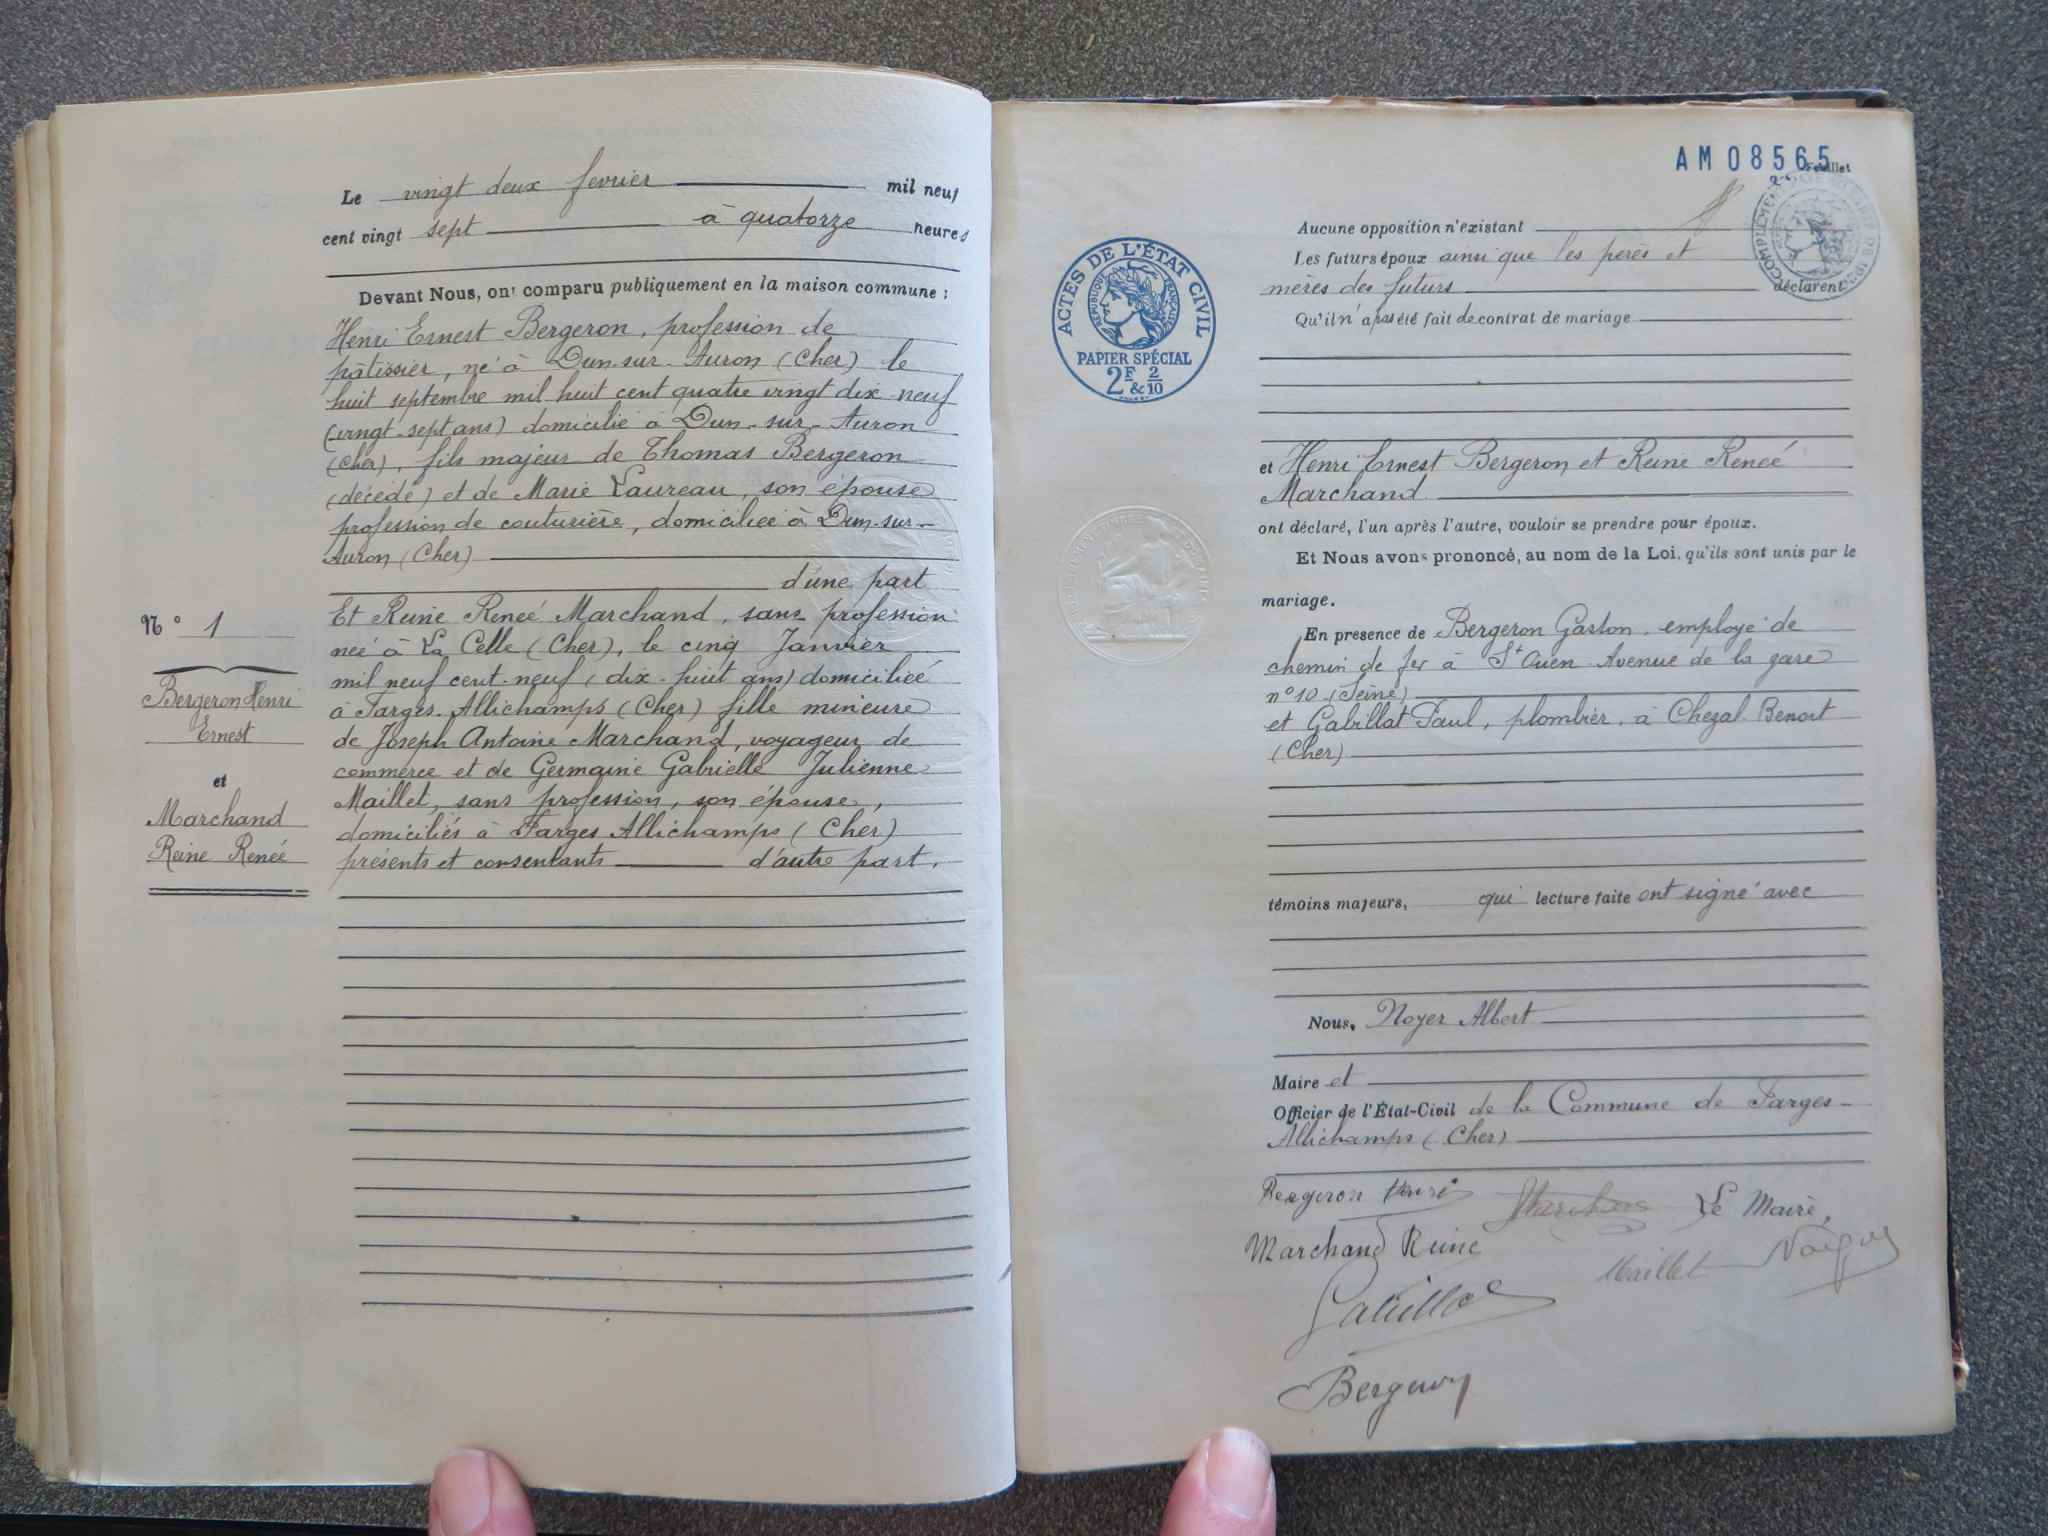 Le vingt deux fevrier mil neuf
cent vingt sept à quatorze heures
Devant Nous, ont comparu publiquement en la maison commune :
Henri Ernest Bergeron, profession de
pâtissier, né à Dun-sur-Auron (Cher) le
huit septembre mil huit cent quatre vingt dix-neuf
(vingt-sept ans) domicilié à Dun-sur-Auron
(Cher), fils majeur de Thomas Bergeron
(décédé) et de Marie Laureau, son épouse
profession de couturière, domiciliée à Dun-sur-
Auron (Cher)
d'une part
Et Reine Reneé Marchand, sans profession
née à La Celle (Cher), le cinq Janvier
mil neuf cent-neuf (dix-huit ans) domiciliée
à Farges-Allichamps (Cher) fille mineure
de Joseph Antoine Marchand, voyageur de
commerce et de Germaine Gabrielle Julienne
Maillet, sans profession, son épouse,
domiciliés à Farges Allichamps (Cher)
présents et consentants d'autre part.
N° 1
Bergeron Henri
Ernest
et
Marchand
Reine Reneé
AM 08565
Feuillet
ACTES DE L'ÉTAT CIVIL
RÉPUBLIQUE FRANÇAISE
PAPIER SPÉCIAL
2F & 2/10
Aucune opposition n'existant
Les futurs époux ainsi que les perès et
mères des futurs déclarent
Qu'il n'a pas été fait de contrat de mariage
et Henri Ernest Bergeron et Reine Reneé
Marchand
ont déclaré, l'un après l'autre, vouloir se prendre pour époux.
Et Nous avons prononcé, au nom de la Loi, qu'ils sont unis par le
mariage.
En presence de Bergeron Gaston, employé de
chemin de fer à St Ouen Avenue de la gare
n° 10 (Seine)
et Gabillat Paul, plombier, à Chezal-Benoit
(Cher)
témoins majeurs, qui lecture faite ont signé avec
Nous, Noyer Albert
Maire et
Officier de l'État-Civil de la Commune de Farges-
Allichamps (Cher)
Bergeron Henri Marchand Le Maire,
Marchand Reine Maillet Noyer
Gabillat
Bergeron